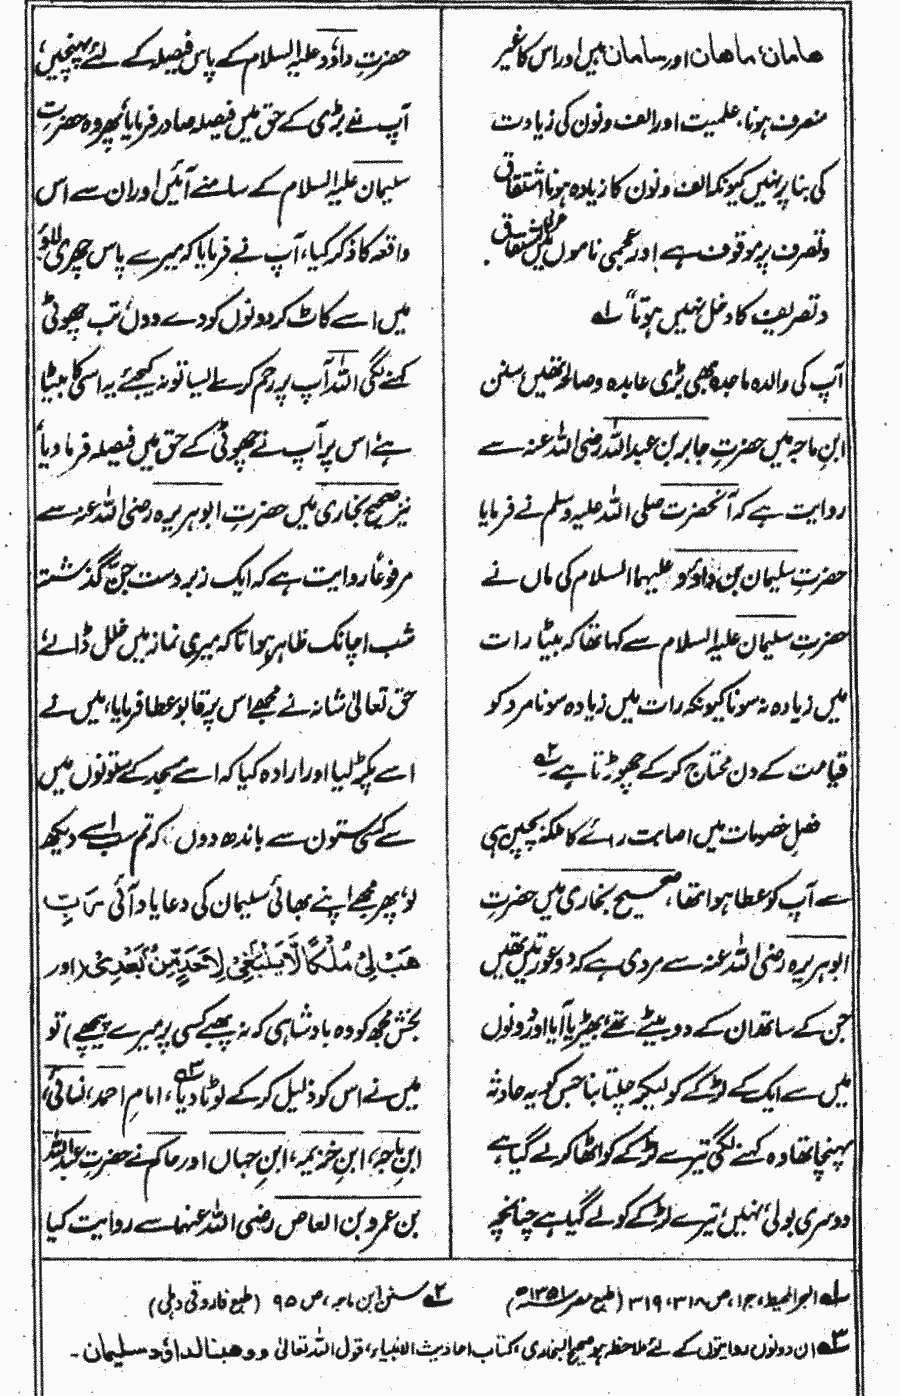 هامان، ماهان اور سامان ہیں اور اس کا غیر
منصرف ہونا، علمیت اور الف و نون کی زیادت
کی بنا پر نہیں کیونکہ الف و نون کا زیادہ ہونا اشتقاق
و تصرف پر موقوف ہے اور عجمی ناموں میں عربی اشتقاق
و تصریف کا دخل نہیں ہوتا" ۱ے
آپ کی والدہ ماجدہ بھی بڑی عابدہ و صالحہ تھیں، سنن
ابنِ ماجہ میں حضرتِ جابر بن عبداللہ رضی اللہ عنہ سے
روایت ہے کہ آنحضرت صلی اللہ علیہ وسلم نے فرمایا
حضرتِ سلیمان بن داؤد علیہما السلام کی ماں نے
حضرتِ سلیمان علیہ السلام سے کہا تھا کہ بیٹا رات
میں زیادہ نہ سونا کیونکہ رات میں زیادہ سونا مرد کو
قیامت کے دن محتاج کر کے چھوڑتا ہے ۲ے
فصلِ خصومات میں اصابتِ رائے کا ملکہ بچپن ہی
سے آپ کو عطا ہوا تھا، صحیح بخاری میں حضرتِ
ابوہریرہ رضی اللہ عنہ سے مروی ہے کہ دو عورتیں تھیں
جن کے ساتھ ان کے دو بیٹے تھے، بھیڑیا آیا اور دونوں
میں سے ایک کے لڑکے کو لیکر چلتا بنا جس کو یہ حادثہ
پہنچا تھا وہ کہنے لگی تیرے لڑکے کو اٹھا کر لے گیا ہے
دوسری بولی، نہیں، تیرے لڑکے کو لے گیا ہے چنانچہ
حضرتِ داؤد علیہ السلام کے پاس فیصلہ کے لئے پہنچیں،
آپ نے بڑی کے حق میں فیصلہ صادر فرمایا، پھر وہ حضرتِ
سلیمان علیہ السلام کے سامنے آئیں اور ان سے اس
واقعہ کا ذکر کیا، آپ نے فرمایا کہ میرے پاس چھری لاؤ
میں اسے کاٹ کر دونوں کو دے دوں، تب چھوٹی
کہنے لگی اللہ آپ پر رحم کرے ایسا تو نہ کیجئے یہ اسی کا بیٹا
ہے، اس پر آپ نے چھوٹی کے حق میں فیصلہ فرما دیا،
نیز صحیح بخاری میں حضرتِ ابوہریرہ رضی اللہ عنہ سے
مرفوعاً روایت ہے کہ ایک زبردست جن گذشتہ
شب اچانک ظاہر ہوا تاکہ میری نماز میں خلل ڈالے،
حق تعالیٰ شانہ نے مجھے اس پر قابو عطا فرمایا، میں نے
اسے پکڑ لیا اور ارادہ کیا کہ اسے مسجد کے ستونوں میں
سے کسی ستون سے باندھ دوں کہ تم سب اسے دیکھ
لو، پھر مجھے اپنے بھائی سلیمان کی دعا یاد آئی رَبِّ
هَبْ لِيْ مُلْكًا لَّا يَنْبَغِيْ لِاَحَدٍ مِّنْۢ بَعْدِيْ (اور
بخش مجھ کو وہ بادشاہی کہ نہ پھبے کسی پر میرے پیچھے) تو
میں نے اس کو ذلیل کر کے لوٹا دیا ۳ے، امامِ احمد، نسائی،
ابنِ ماجہ، ابنِ خزیمہ، ابنِ حبان اور حاکم نے حضرتِ عبداللہ
بن عمرو بن العاص رضی اللہ عنہما سے روایت کیا
۱ے البحر المحیط، ج۱، ص ۳۱۸، ۳۱۹ (طبع مصر ۱۳۵۱ھ)
۲ے سنن ابن ماجہ، ص ۹۵ (طبع فاروقی دہلی)
۳ے ان دونوں روایتوں کے لئے ملاحظہ ہو صحیح البخاری، کتاب احادیث الانبیاء، قول اللہ تعالیٰ ووهبنا لداؤد سلیمان۔